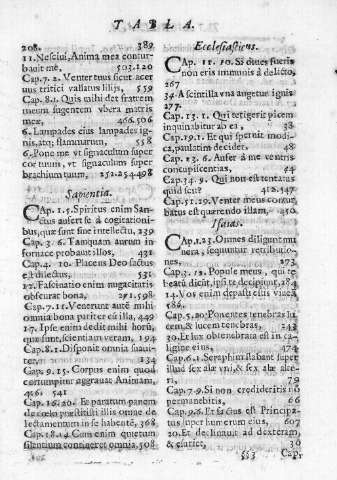 TABLA.
208. 389
11. Nescivi, Anima mea contur-
bavit mè, 503.120
Cap. 7. 2. Venter tuus sicut acer
vus tritici vallatus lilijs, 559
Cap. 8.1. Quis mihi det fratrem
meum sugentem vbera matris
mex, 466.506
6. Lampades eius lampades ig-
nis, atq; flammarum, 558
6. Pone me vt signaculum super
cor tuum, vt signaculum super
brachium tuum, 251.254.498
Sapientia.
CAp. 1.5. Spiritus enim San-
ctus aufert se à cogitationi-
bus, quæ sunt sine intellectu, 239
Cap. 3. 6. Tamquam aurum in
fornace probavit illos, 431
Cap. 4. 10. Placens Deo factus
est dilectus, 531
12. Fascinatio enim nugacitatis
obscurat bona, 291.598
Cap. 7.11. Venerunt autè mihi
omnia bona pariter cũ illa, 449
17. Ipse enim dedit mihi horũ,
quæ sunt, scientiam veram, 194
Cap. 8.1. Disponit omnia suavi-
ter, 134
Cap. 9. 15. Corpus enim quod
corrumpitur aggravat Animam,
416. 541
Cap. 16.20. Et paratum panem
de cœlo præstitisti illis omne de
lectamentum in se habentẽ, 368
Cap. 18.14. Cum enim quietum
silentium contineret omnia, 508
Ecclesiasticus.
CAp. 11. 10. Si dives fueris
non eris immunis à delicto,
267
34. A scintilla vna augetur ignis
277.
Cap. 13. 1. Qui tetigerit picem
inquinabitur ab ea, 38
Cap. 19.1. Et qui spernit modi-
ca, paulatim decidet, 48
Cap. 13. 6. Aufer à me ventris
concupiscentias, 74
Cap. 34.9. Qui non est tentatus
quid scit? 412.547
Cap. 51.29. Venter meus contur
batus est quærendo illam, 450
Isaias.
CAp. 1.23. Omnes diligunt mu
nera, sequuntur retributio-
nes, 273
Cap. 3. 12. Popule meus, qui te
beatũ dicũt, ipsi te decipiunt, 284
14. Vos enim depasti estis vineã,
586
Cap. 5.20. Ponentes tenebras lu
cem, & lucem tenebras, 243
30. Et lux obtenebrata est in ca-
ligine eius, 474
Cap. 6.1. Seraphim stabant super
illud sex alæ vni, & sex alæ alte-
ri, 79
Cap. 7.9. Si non credideritis nõ
permanebitis, 66
Cap. 9.6. Et factus est Principa-
tus super humerum eius, 607
20. Et declinabit ad dexteram,
& esuriet, 36
553 Cap.